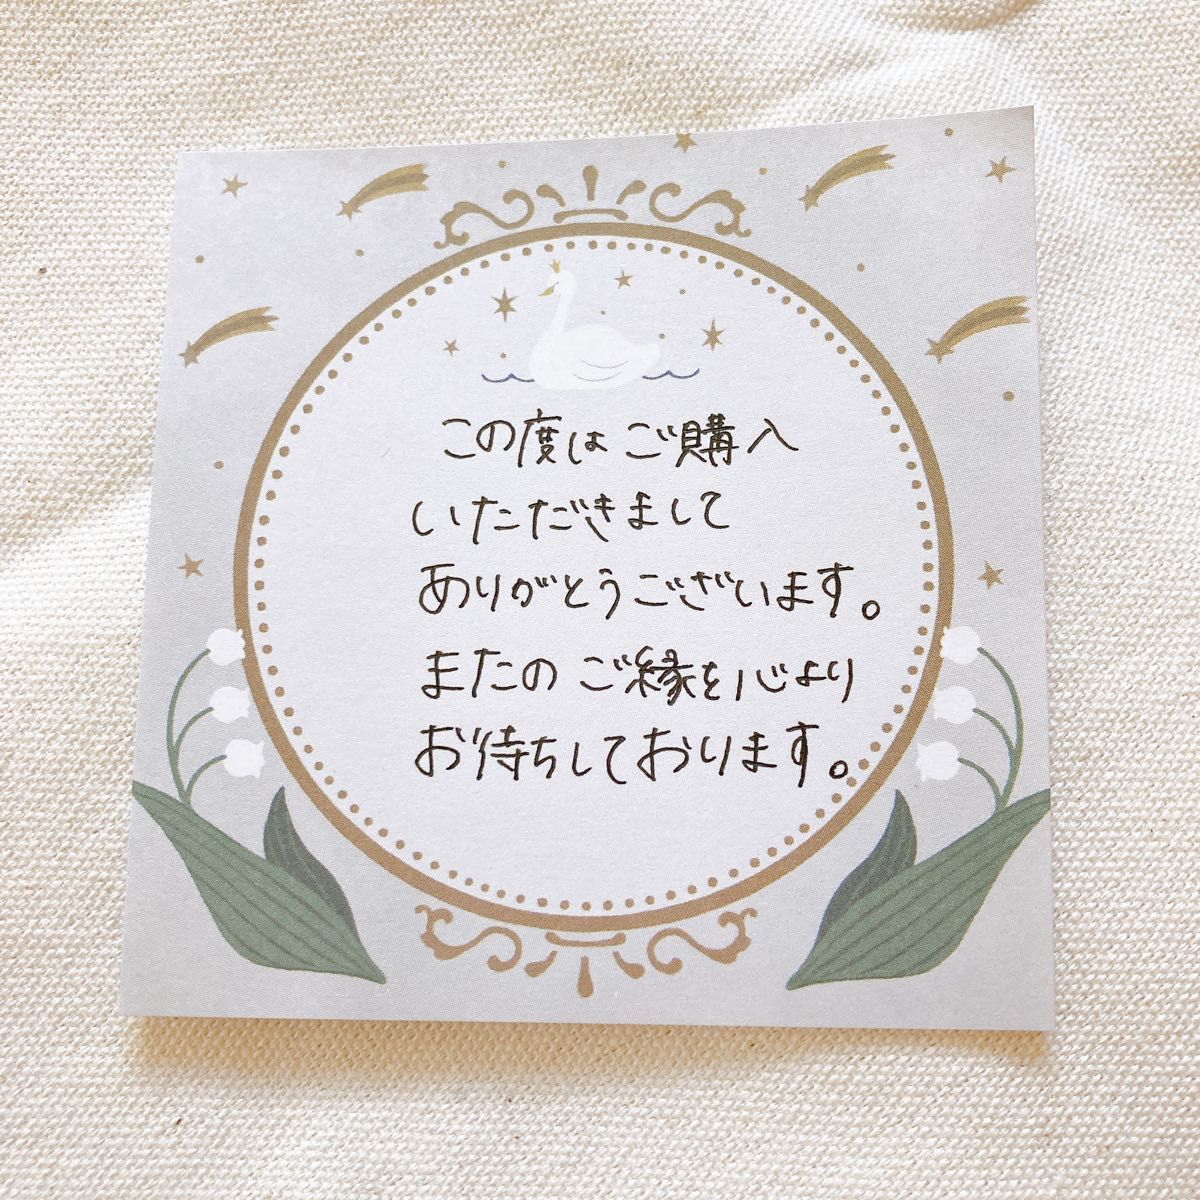 この度は ご購入
いただきまして
ありがとうございます。
またの ご縁を心より
お待ちしております。